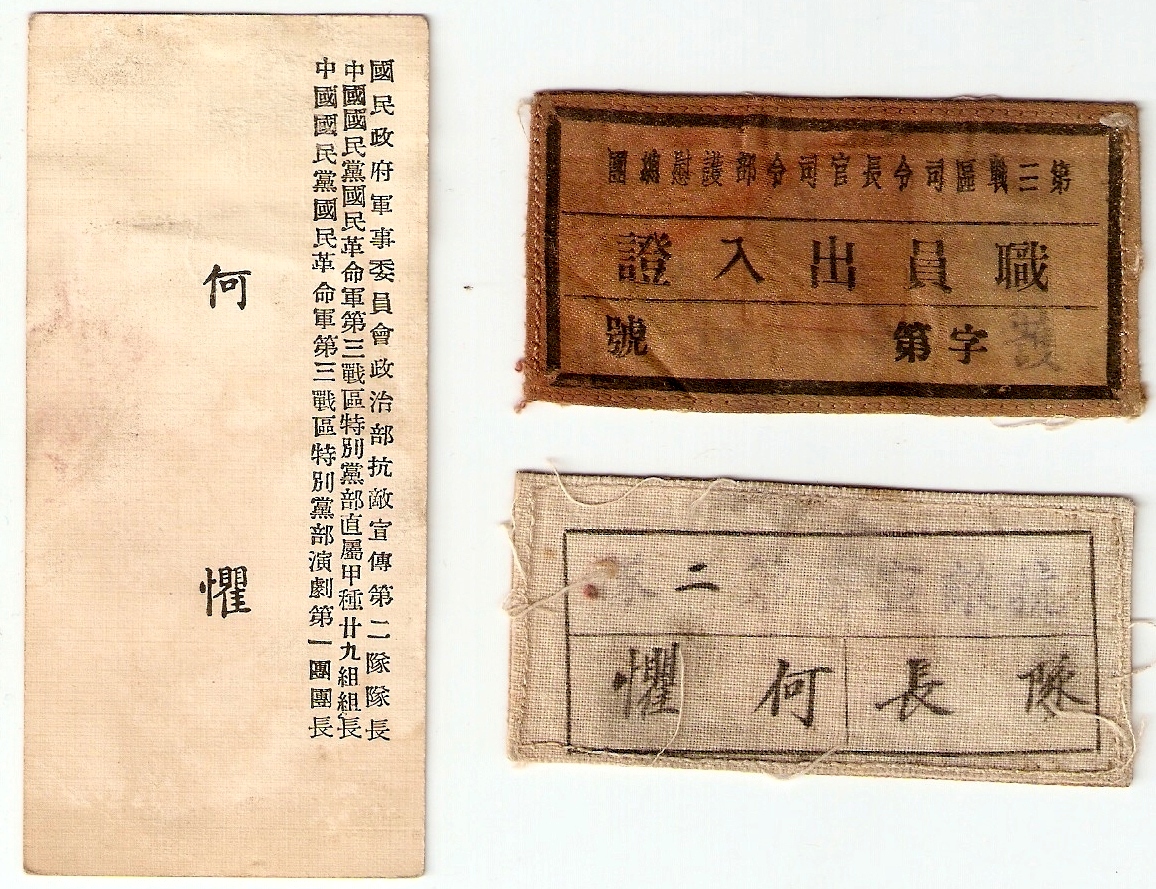 國民政府軍事委員會政治部抗敵宣傳第二隊隊長
中國國民黨國民革命軍第三戰區特別黨部直屬甲種廿九組組長
中國國民黨國民革命軍第三戰區特別黨部演劇第一團團長
何懼
第三戰區司令長官司令部護慰總團
職員出入證
字第 號
二
隊長 何懼